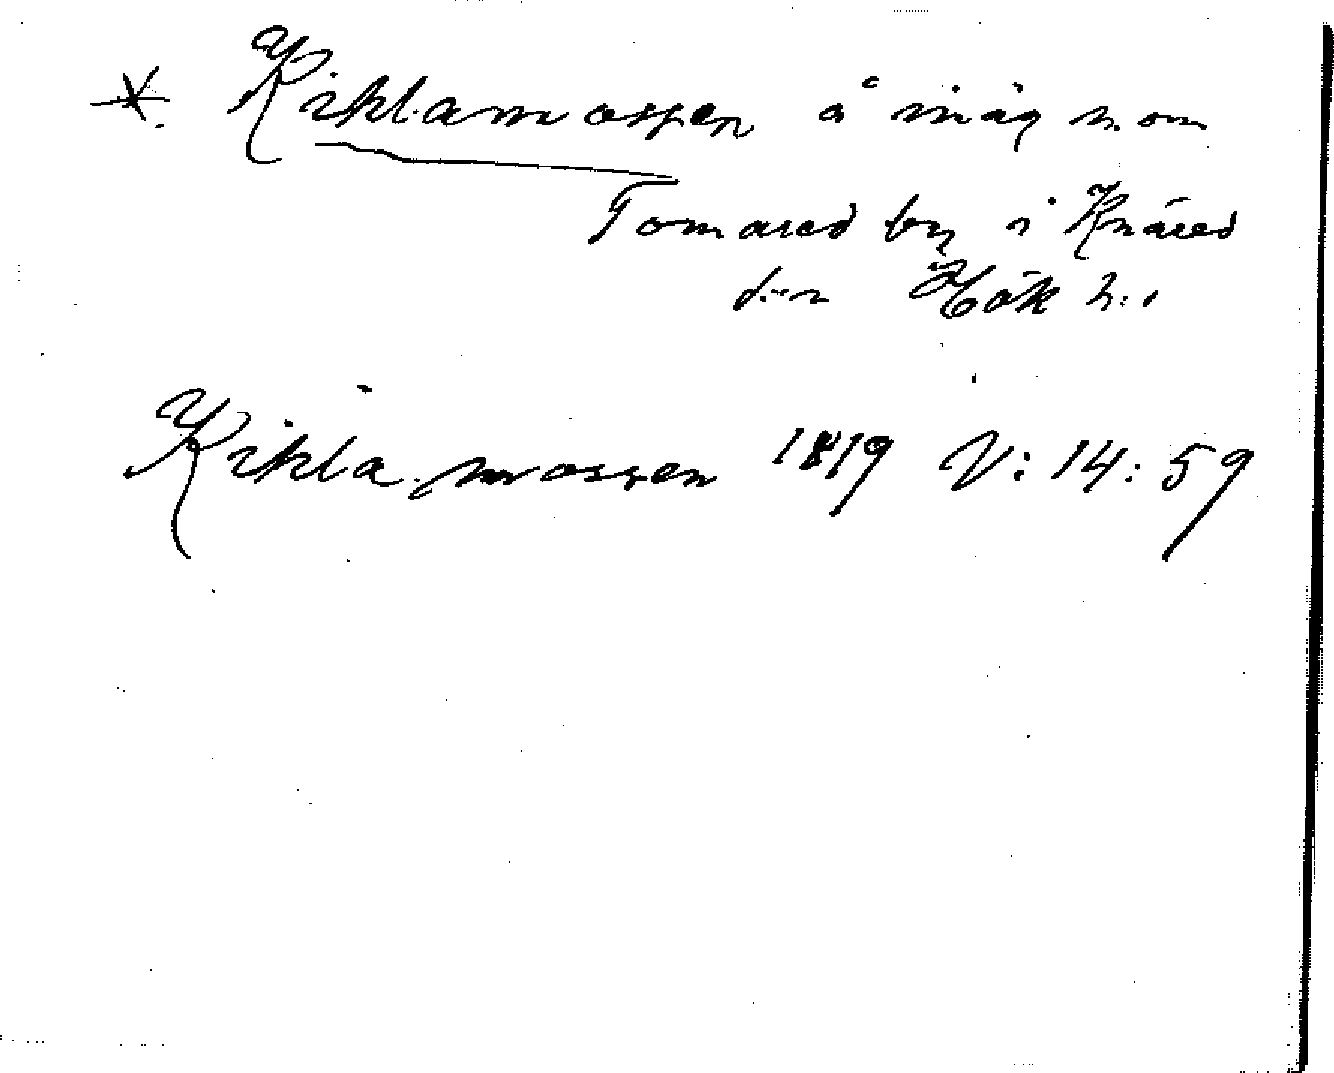 * Kiklamossen å inäg. inom
Tomared by i Knäred
sn Höks h.
Kikla mossen 1819 V: 14: 59